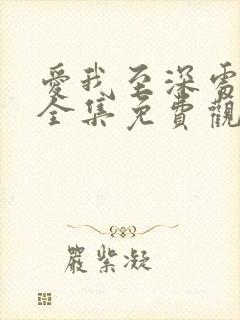 愛我至深電
全集免費觀
嚴紫凝